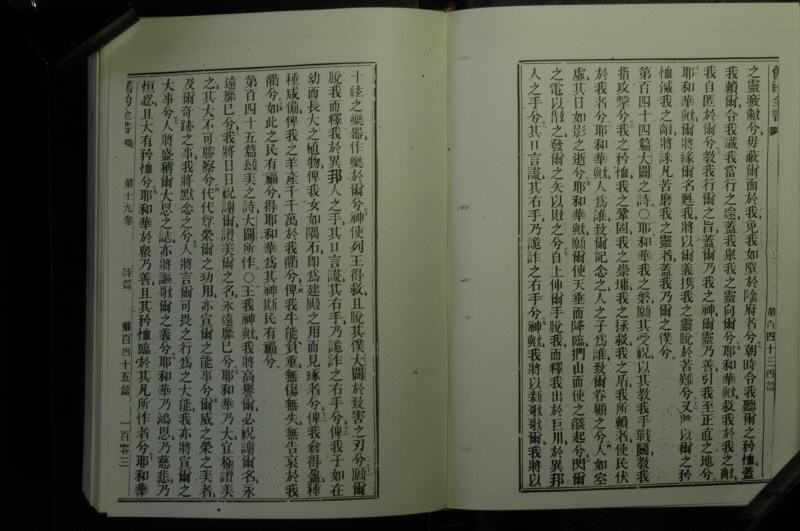 舊約全書
第百四十三四篇
之靈疲憊兮毋蔽爾面於我免我如墮於陰府者兮朝時令我聽爾之矜恤蓋
我賴爾兮令我識我當行之途蓋我舉我之靈向爾兮耶和華歟救我於我之敵
我自匿於爾兮教我行爾之旨蓋爾乃我之神爾靈乃善引我至正直之地兮
耶和華歟爾將緣爾名甦我將以爾義攜我之靈脫於苦難兮又將以爾之矜
恤滅我之敵將誅凡苦磨我之靈者蓋我乃爾之僕兮
第百四十四篇大闢之詩○耶和華我之磐願其受祝以其教我手戰鬬教我
指攻擊兮我之矜恤我之鞏固我之崇墉我之拯救我之盾我所賴者使民伏
於我者兮耶和華歟人爲誰致爾記念之人之子爲誰致爾眷顧之兮人如空
虛其日如影之逝兮耶和華歟願爾使天垂而降臨捫山而使之燄起兮閃爾
之電以散之發爾之矢以敗之兮自上伸爾手脫我而釋我出於巨川於異邦
人之手兮其口言謊其右手乃詭詐之右手兮神歟我將以新歌歌爾我將以
十絃之樂器作樂於爾兮神使列王得救且脫其僕大闢於致害之刃兮願爾
脫我而釋我於異邦人之手其口言謊其右手乃詭詐之右手兮俾我子如在
幼而長大之植物俾我女如隅石卽爲建殿之用而見琢者兮俾我倉得盈種
種咸備俾我之羊產千千萬於我衢兮俾我牛能負重無傷無失無告哀於我
衢兮如此之民有福兮得耶和華爲其神斯民有福兮
第百四十五篇頌美之詩大闢所作○王我神歟我將高舉爾必祝謝爾名永
遠靡已兮我將日日祝謝爾讚美爾之名永遠靡已兮耶和華乃大宜極讚美
之其大不可勝察兮代代將榮爾之功用亦宣爾之能事兮爾威之榮之美者
及爾奇跡之事我將默念之兮人將言爾可畏之行爲之大能我亦將宣爾之
大事兮人將盛稱爾大恩之誌亦將謳歌爾之義兮耶和華乃鴻恩乃慈悲乃
恒忍且大有矜恤兮耶和華於衆乃善且其矜恤臨於其凡所作者兮耶和華
舊約全書
第十九卷
詩篇
第百四十五篇
一百零三